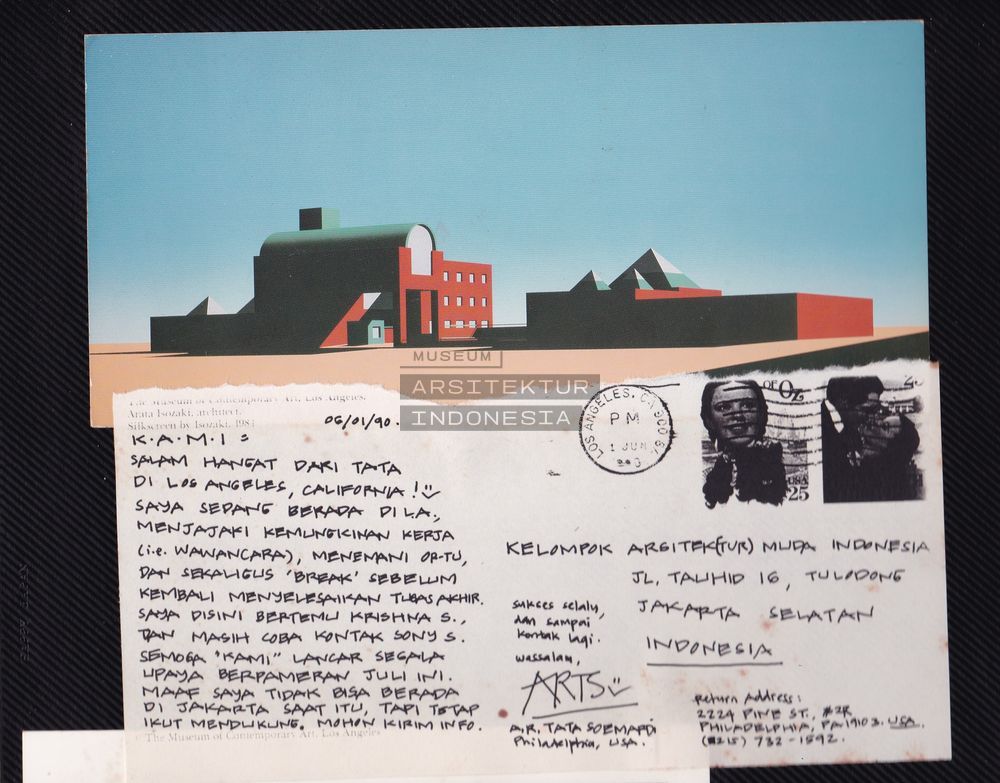 MUSEUM
ARSITEKTUR
INDONESIA
The Museum of Contemporary Art, Los Angeles.
Arata Isozaki, architect.
Silkscreen by Isozaki, 1983
06/01/90.
K.A.M.I :
SALAM HANGAT DARI TATA
DI LOS ANGELES, CALIFORNIA!
SAYA SEDANG BERADA DI LA.,
MENJAJAKI KEMUNGKINAN KERJA
(i.e. WAWANCARA), MENEMANI OR-TU,
DAN SEKALIGUS 'BREAK' SEBELUM
KEMBALI MENYELESAIKAN TUGAS AKHIR.
SAYA DISINI BERTEMU KRISHNA S.,
DAN MASIH COBA KONTAK SONY S.
SEMOGA "KAMI" LANCAR SEGALA
UPAYA BERPAMERAN JULI INI.
MAAF SAYA TIDAK BISA BERADA
DI JAKARTA SAAT ITU, TAPI TETAP
IKUT MENDUKUNG. MOHON KIRIM INFO.
© The Museum of Contemporary Art, Los Angeles
LOS ANGELES, CA
PM
1 JUN
OF OZ
USA
25
KELOMPOK ARSITEK(TUR) MUDA INDONESIA
JL. TAUHID 16, TULODONG
JAKARTA SELATAN
INDONESIA
sukses selalu,
dan sampai
kontak lagi.
wassalam,
ARTS
A.R. TATA SOEMARDI
Philadelphia, USA.
return address:
2224 PINE ST., #2R
PHILADELPHIA, PA 19103. USA.
(215) 732-1592.